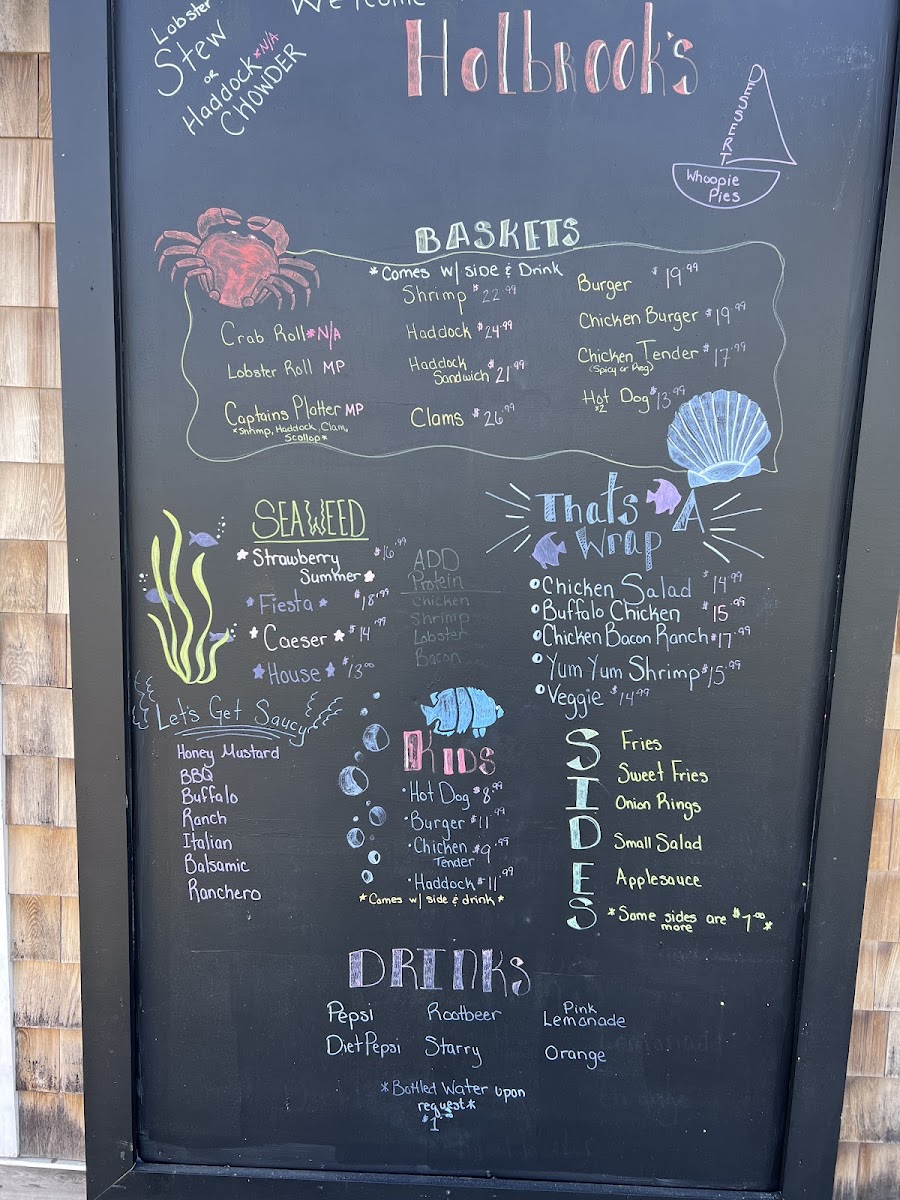 Welcome
Holbrook's
Lobster
Stew
OR
Haddock *N/A
CHOWDER
DESSERT
Whoopie
Pies
BASKETS
*Comes w/ side & Drink
Crab Roll *N/A
Lobster Roll MP
Captains Platter MP
*Shrimp, Haddock, Clam,
Scallop*
Shrimp $22.99
Haddock $24.99
Haddock
Sandwich $21.99
Clams $26.99
Burger $19.99
Chicken Burger $19.99
Chicken Tender $17.99
(Spicy or Reg)
Hot Dog $13.99
x2
SEAWEED
Strawberry $16.99
Summer
Fiesta $18.99
Caeser $14.99
House $13.00
ADD
Protein
Chicken
Shrimp
Lobster
Bacon
Thats A
Wrap
Chicken Salad $14.99
Buffalo Chicken $15.99
Chicken Bacon Ranch $17.99
Yum Yum Shrimp $15.99
Veggie $14.99
Let's Get Saucy
Honey Mustard
BBQ
Buffalo
Ranch
Italian
Balsamic
Ranchero
Kids
Hot Dog $8.99
Burger $11.99
Chicken $9.99
Tender
Haddock $11.99
*Comes w/ side & drink*
SIDES
Fries
Sweet Fries
Onion Rings
Small Salad
Applesauce
*Some sides are $1.00*
more
DRINKS
Pepsi
Diet Pepsi
Rootbeer
Starry
Pink
Lemonade
Orange
*Bottled Water upon
request*
$1